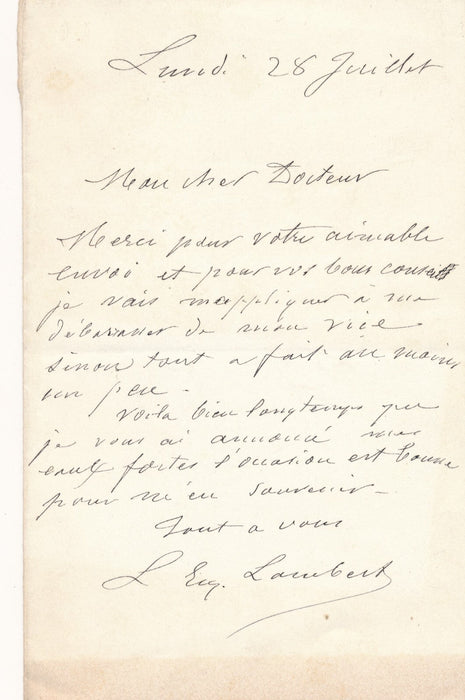 Lundi 28 Juillet
Mon cher Docteur
Merci pour votre aimable
envoi et pour vos bons conseils
je vais m'appliquer à me
débarrasser de mon vice
sinon tout a fait au moins
un peu.
Voila bien longtemps que
je vous ai annoncé mes
eaux fortes l'occasion est bonne
pour m'en souvenir_
Tout a vous
L Eug. Lambert